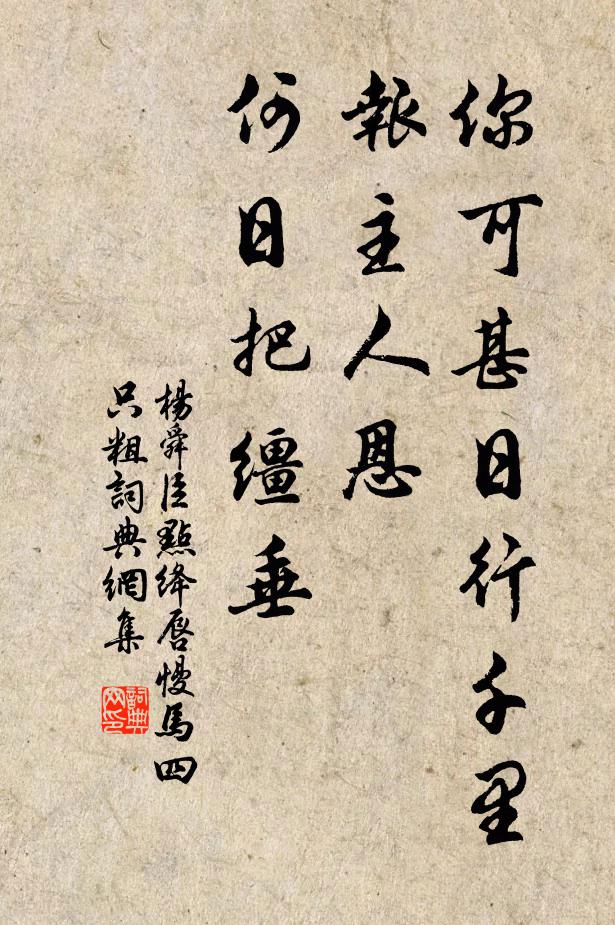 你可甚日行千里
報主人恩
何日把繮垂
楊舜臣點绛唇慢馬四
只粗詞典網集
詞典网印